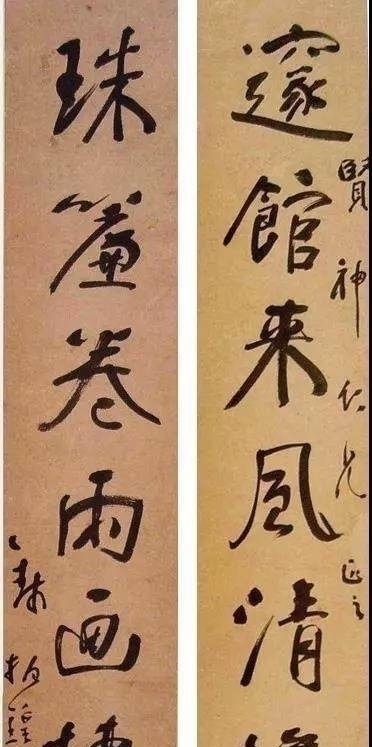 賢神仁兄正之
邃館来風清
珠簾卷雨画